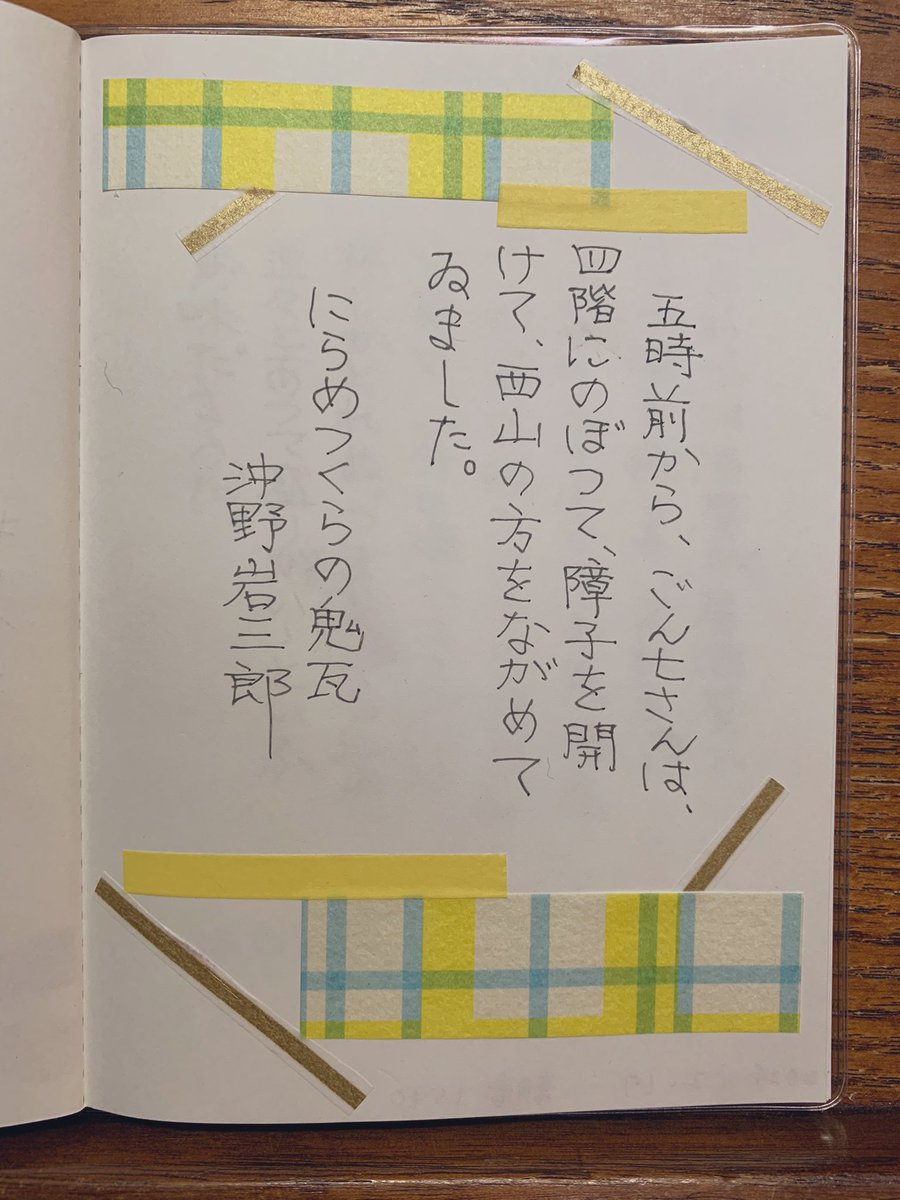 五時前から、ごん七さんは、
四階にのぼつて、障子を開
けて、西山の方をながめて
ゐました。
にらめつくらの鬼瓦
沖野岩三郎